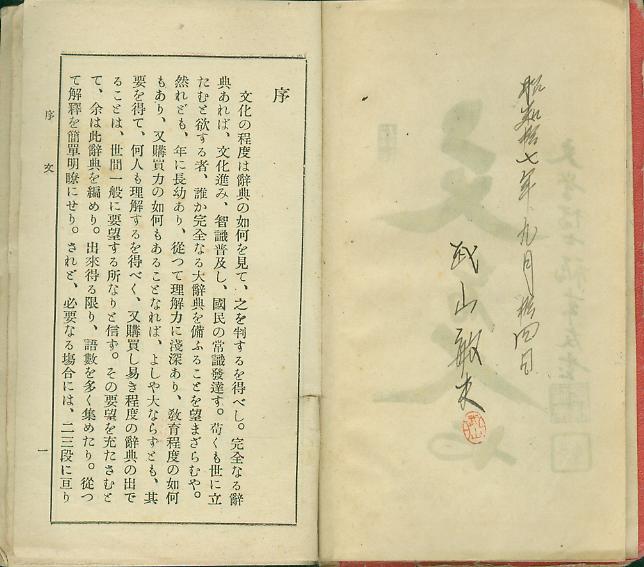 昭和拾七年九月拾四日
武山敏夫
序
文化の程度は辭典の如何を見て、之を判するを得べし。完全なる辭
典あれば、文化進み、智識普及し、國民の常識發達す。苟くも世に立
たむと欲する者、誰か完全なる大辭典を備ふることを望まざらむや。
然れども、年に長幼あり、從つて理解力に淺深あり、敎育程度の如何
もあり、又購買力の如何もあることなれば、よしや大ならずとも、其
要を得て、何人も理解するを得べく、又購買し易き程度の辭典の出で
ることは、世間一般に要望する所なりと信ず。その要望を充たさむと
て、余は此辭典を編めり。出來得る限り、語數を多く集めたり。從つ
て解釋を簡單明瞭にせり。されど、必要なる場合には、二三段に亘り
序文
一